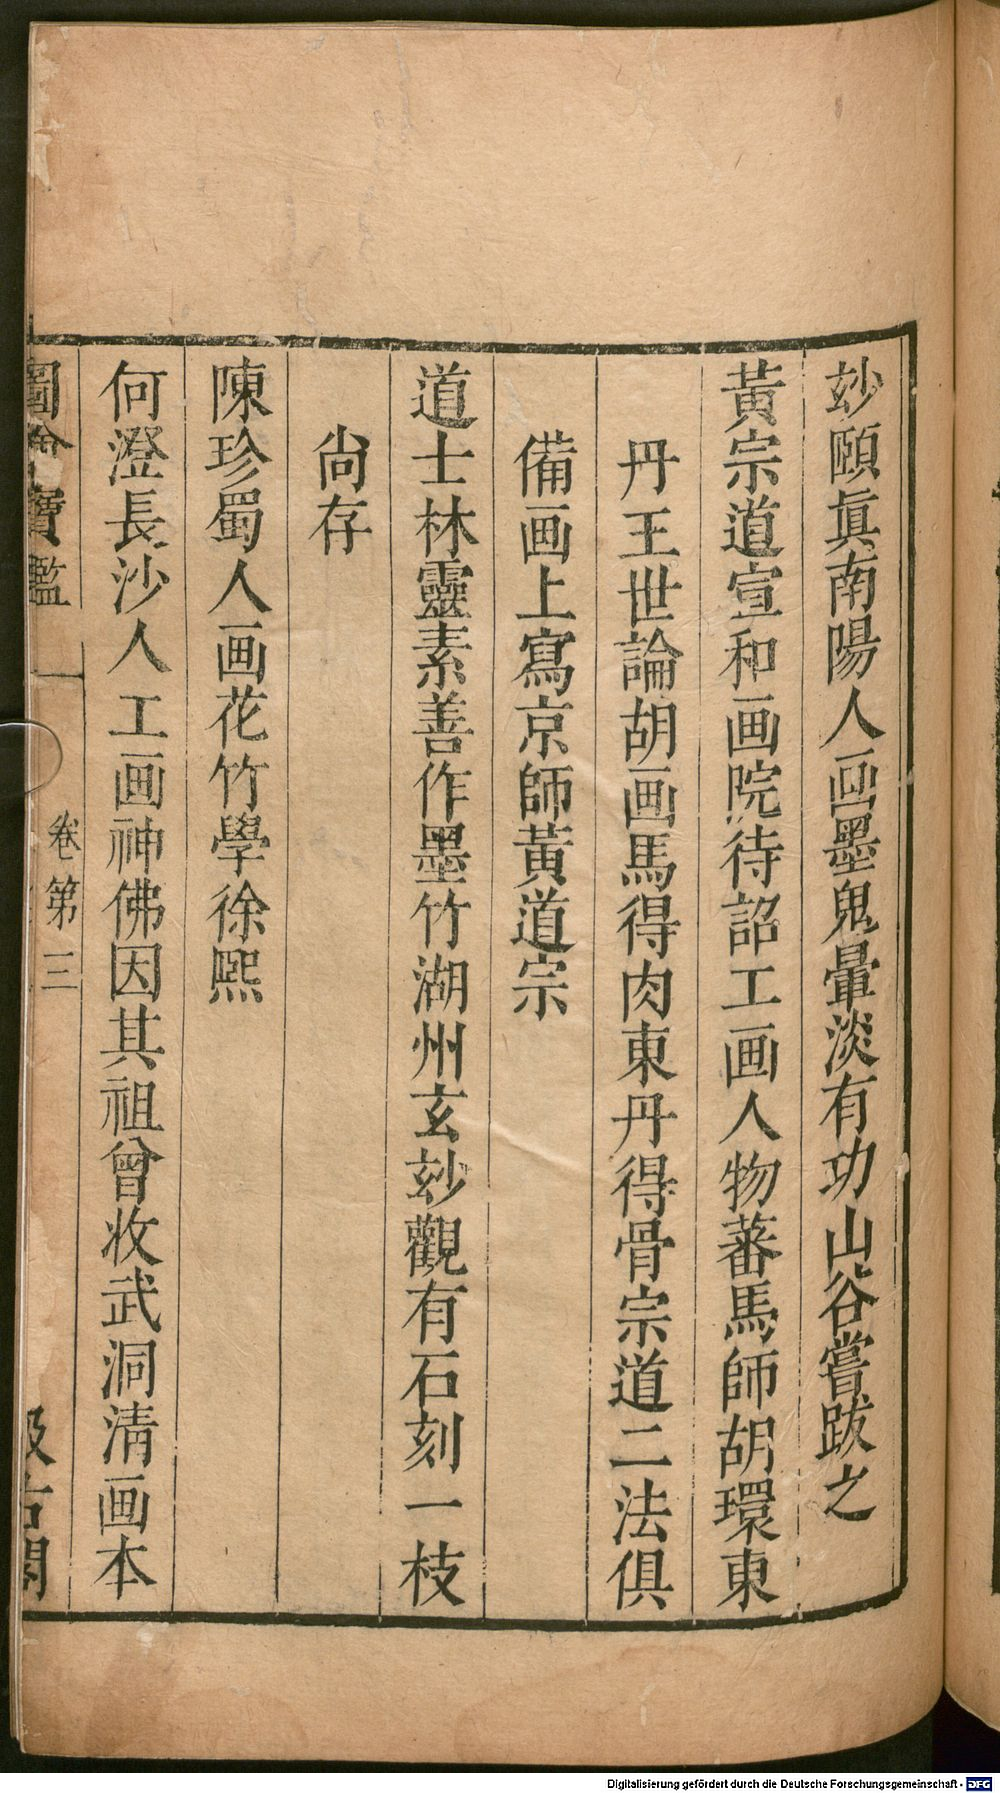 玅頤眞南陽人画墨鬼暈淡有功山谷嘗跋之
黃宗道宣和画院待詔工画人物蕃馬師胡環東
丹王世論胡画馬得肉東丹得骨宗道二法俱
備画上寫京師黃道宗
道士林靈素善作墨竹湖州玄玅觀有石刻一枝
尙存
陳珍蜀人画花竹學徐熈
何澄長沙人工画神佛因其祖曾收武洞淸画本
圖繪寶鑑
卷第三
汲古閣
Digitalisierung gefördert durch die Deutsche Forschungsgemeinschaft - DFG